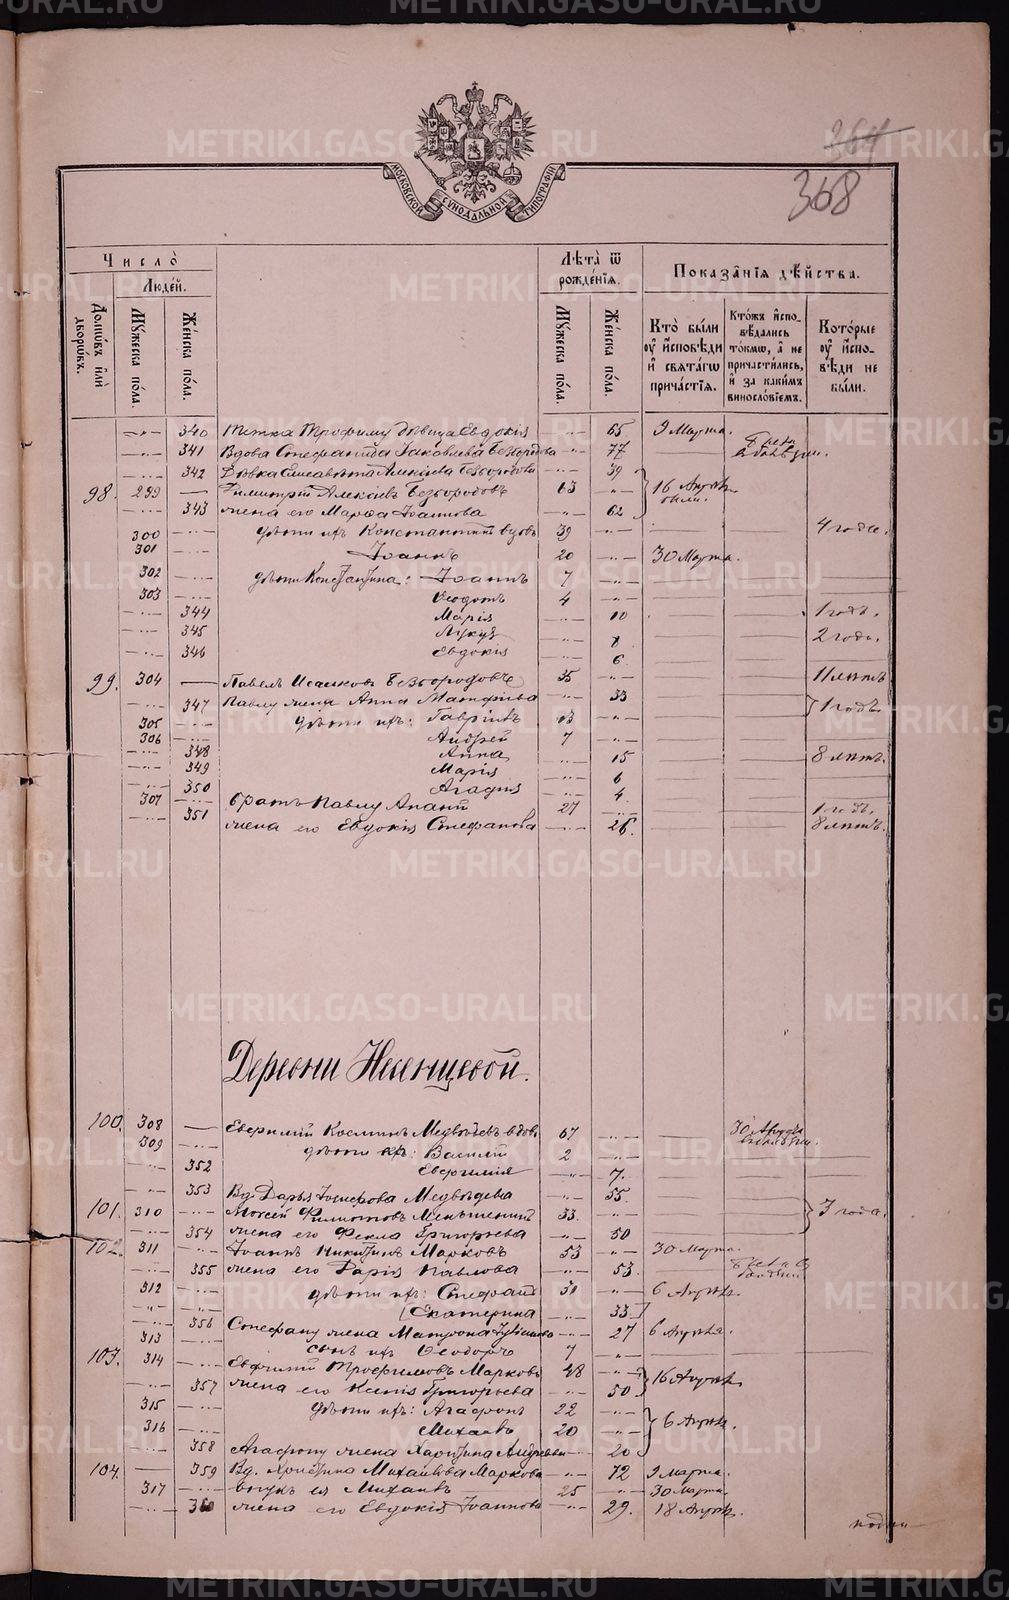 364
368
МОСКОВСКОЙ СѴНОДАЛЬНОЙ ТИПОГРАФІИ
Число̀
Людє́й.
Домѡ́въ и҆лѝ дворѡ́въ.
Мꙋ́жеска по́ла.
Же́нска по́ла.
Лѣ́та ѿ рожде́нїѧ.
Мꙋ́жеска по́ла.
Же́нска по́ла.
Показа̑нїѧ дѣ́йства.
Кто̀ бы́ли оу҆ и҆сповѣ́ди и҆ свѧта́гѡ прича́стїѧ.
Кто́жъ и҆спо- вѣ́дались то́кмѡ, а҆ не причасти́лись, и҆ за каки́мъ винослові́емъ.
Кото́рые оу҆ и҆спо- вѣ́ди не бы́ли.
340 тетка Трофиму дѣвица Евдокія 65 9 Марта.
341 Вдова Стефанида Іаковлева Безбородова 77
342 Дѣвка Елисавета Алексіева Безбородова 39
98. 299 Димитрій Алексіевъ Безбородовъ 63 16 Апрѣля были.
343 жена его Марѳа Іоаннова 62
300 дѣти ихъ Константинъ вдовъ 39 4 года.
301 Іоаннъ 20 30 Марта.
302 дѣти Константина: Іоаннъ 7
303 Ѳеодотъ 4
344 Марія 10 1 годъ.
345 8 2 года.
346 Евдокія 6
99. 304 Павелъ Исааковъ Безбородовъ 35 11 лѣтъ
347 Павлу жена Анна Матѳіева 33 1 годъ
305 дѣти ихъ: Гавріилъ 13
306 Андрей 7
348 Анна 15 8 лѣтъ.
349 Марія 6
350 Агафія 4
307 братъ Павлу 27 1 годъ.
351 жена его Евдокія Стефанова 26. 8 лѣтъ.
Деревни Неженцевой.
100. 308 Косминъ Медвѣдевъ вдовъ 67 30 Апрѣля
309 дѣти его: Василій 2
352 7.
353 Вд. Дарья Іосифова Медвѣдева 55.
101. 310 Моисей Филипповъ Меньшенинъ 33. 3 года.
354 жена его Фекла Григорьева 50
102. 311 Іоаннъ Никитинъ Марковъ 53 30 Марта.
355 жена его Дарія Павлова 53.
312 дѣти ихъ: Стефанъ 31 6 Апрѣля.
Екатерина 33
356 Стефану жена Матрона 27 6 Апрѣля.
313 сынъ ихъ Ѳеодоръ 7
103. 314 Евфимій Трофимовъ Марковъ 48 16 Апрѣля
357 жена его Ксенія Григорьева 50
315 дѣти ихъ: Агафонъ 22 6 Апрѣля.
316 Михаилъ 20
358 Агафону жена Харитина Андреева 20
104. 359 Вд. Христина Михайлова Маркова 72 9 марта.
317 внукъ ея Михаилъ 25 30 Марта.
360 жена его Евдокія Іоаннова 29. 18 Апрѣля.
METRIKI.GASO-URAL.RU